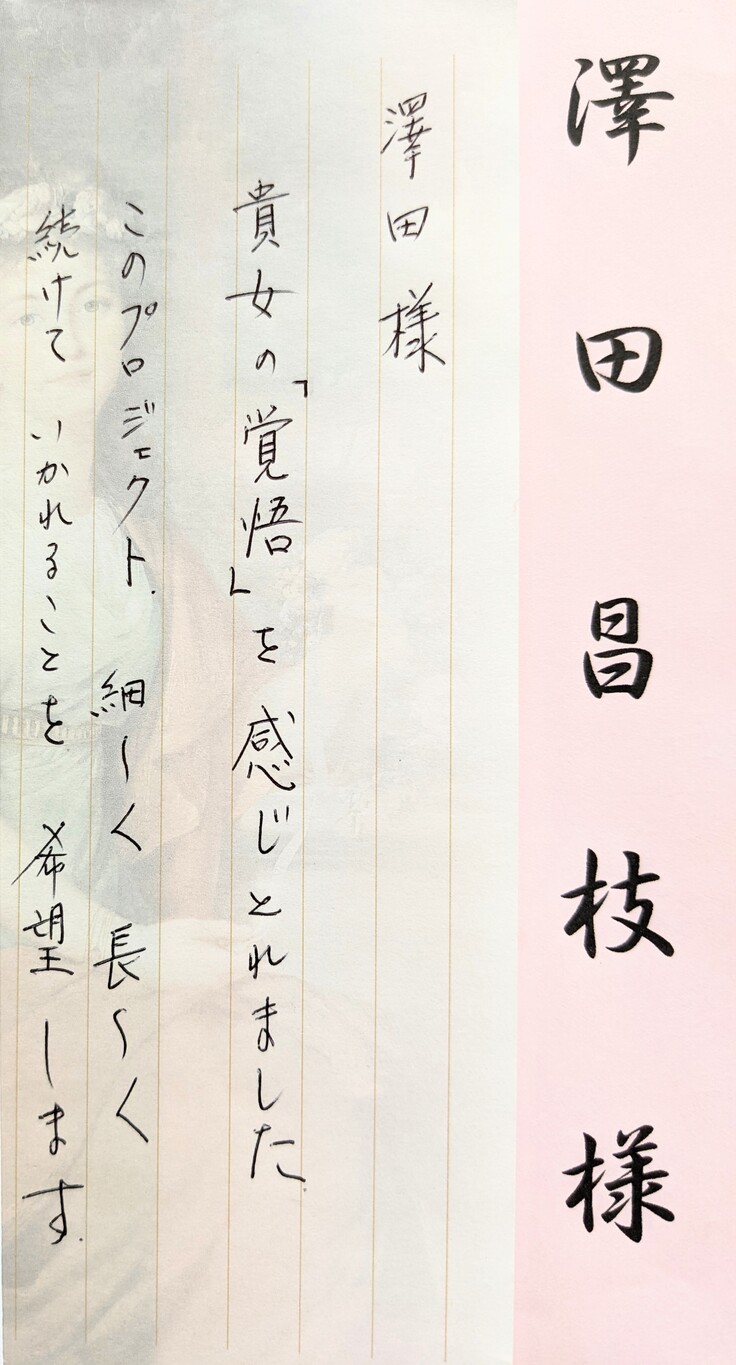 澤田昌枝様
澤田様
貴女の「覚悟」を感じとれました.
このプロジェクト. 細〜く 長〜く
続けていかれることを 希望します.